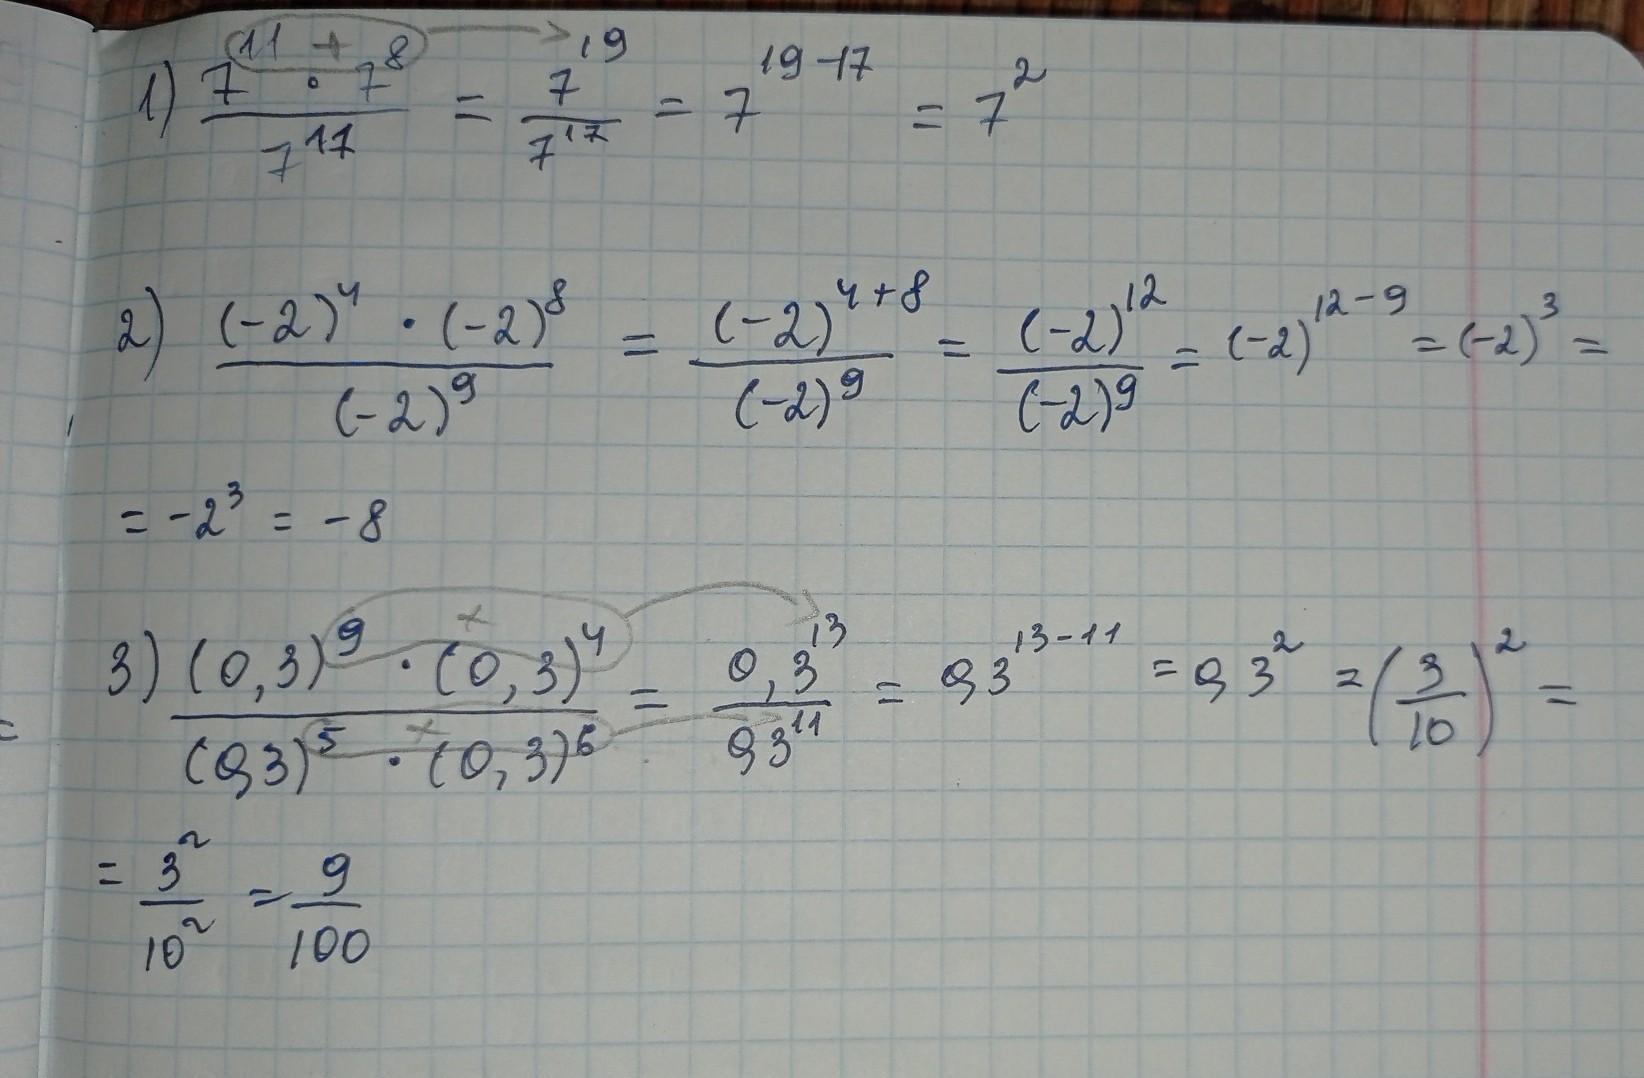 1) (7^11 · 7^8)/7^17 = 7^19/7^17 = 7^(19-17) = 7^2
2) ((-2)^4 · (-2)^8)/(-2)^9 = (-2)^(4+8)/(-2)^9 = (-2)^12/(-2)^9 = (-2)^(12-9) = (-2)^3 =
= -2^3 = -8
3) ((0,3)^9 · (0,3)^4)/((0,3)^5 · (0,3)^6) = 0,3^13/0,3^11 = 0,3^(13-11) = 0,3^2 = (3/10)^2 =
= 3^2/10^2 = 9/100